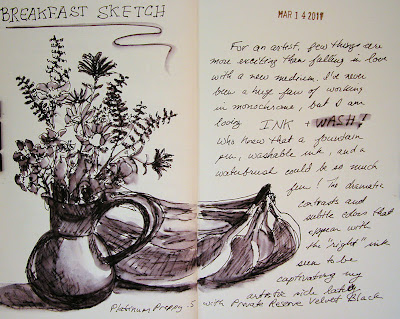 BREAKFAST SKETCH
MAR 14 2011
For an artist, few things are
more exciting than falling in love
with a new medium. I've never
been a huge fan of working
in monochrome, but I am
loving INK + WASH!
Who knew that a fountain
pen, washable ink, and a
waterbrush could be so much
fun! The dramatic
contrasts and
subtle colors that
appear with
the "right" ink
seem to be
captivating my
artistic side lately
Platinum Preppy .5 with Private Reserve Velvet Black